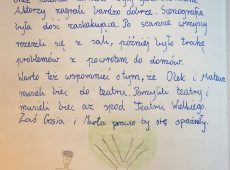 Aktorzy zagrali bardzo dobrze. Scenografia
była dość zaskakująca. Po seansie wszyscy
rozeszli się z sali, później było trochę
problemów z powrotem do domów.
Warto też wspomnieć o tym, że Olek i Mateusz
musieli biec do teatru. Pomylili teatry i
musieli biec aż spod Teatru Wielkiego.
Zaś Gosia i Marta prawie by się spóźniły.